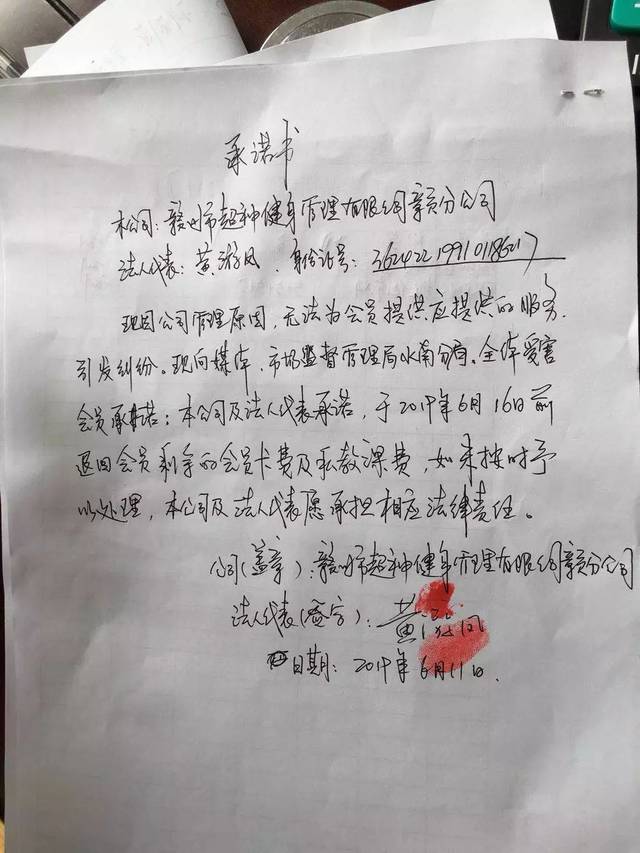 承诺书
本公司：赣州市超神健身管理有限公司章贡分公司
法人代表：黄游凤．身份证号：362422199101186217
现因公司管理原因，无法为会员提供应提供的服务．
引发纠纷。现向媒体、市场监督管理局水南分局、全体受害
会员承诺：本公司及法人代表承诺，于2019年6月16日前
退回会员剩余的会员卡费及私教课费，如未按时予
以处理，本公司及法人代表愿承担相应法律责任。
公司(盖章)：赣州市超神健身管理有限公司章贡分公司
法人代表(签字)：黄
日期：2019年6月11日．